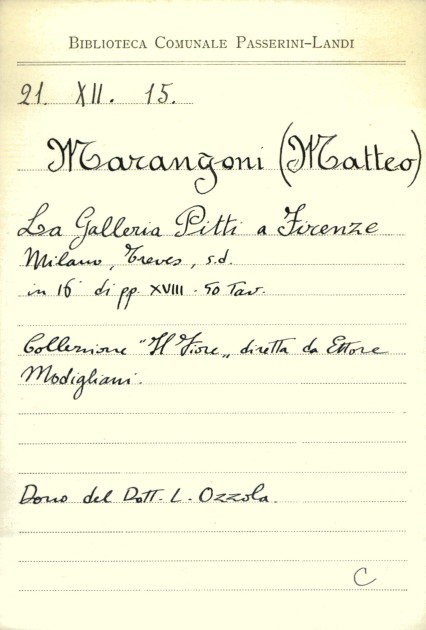 BIBLIOTECA COMUNALE PASSERINI-LANDI
21. XII. 15.
Marangoni (Matteo)
La Galleria Pitti a Firenze
Milano, Treves, s.d.
in 16° di pp. XVIII - 50 Tav.
Collezione "Il Fiore„ diretta da Ettore
Modigliani.
Dono del Dott. L. Ozzola.
C